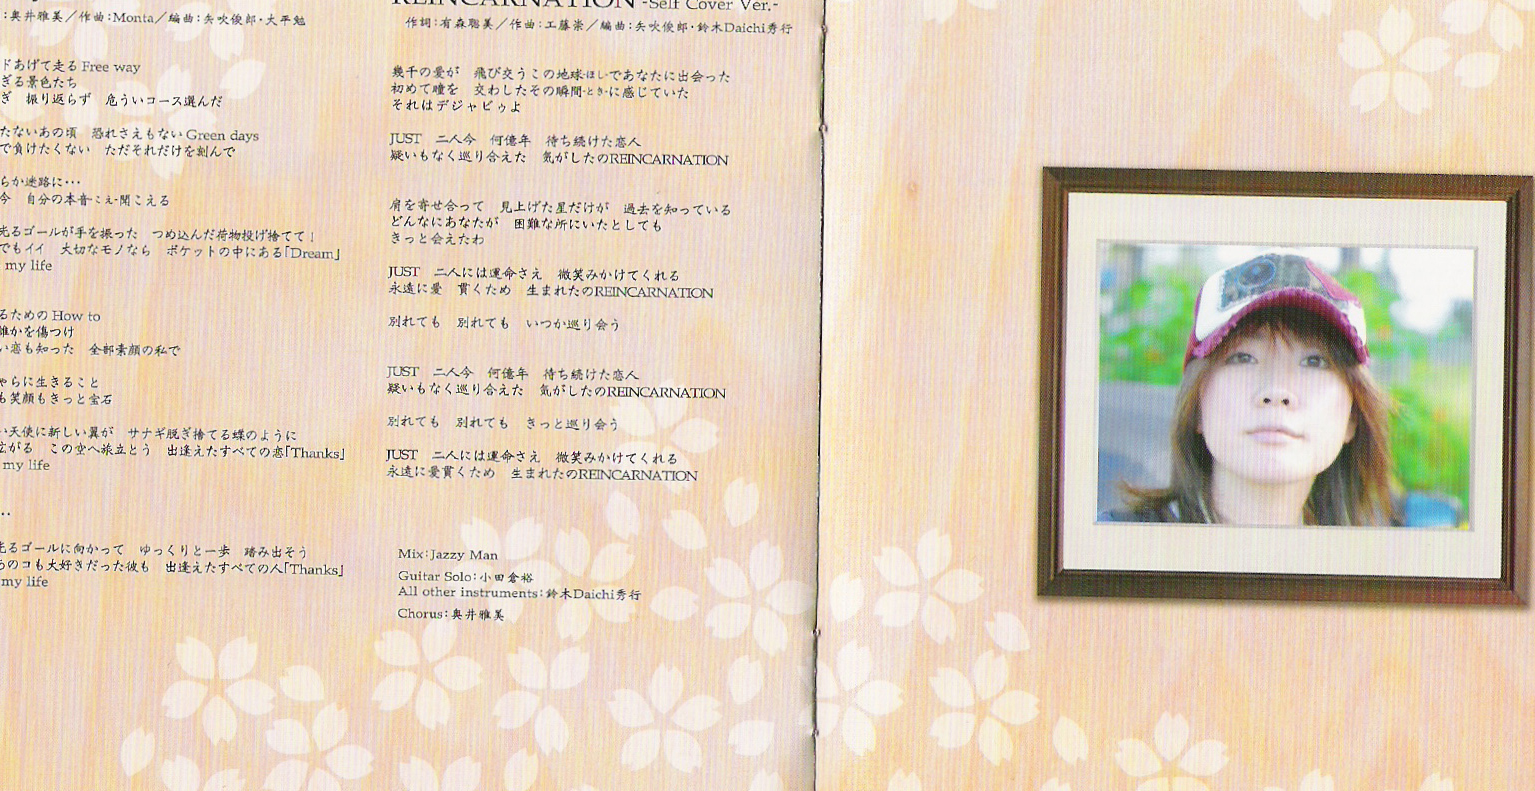 :奥井雅美／作曲:Monta／編曲:矢吹俊郎・大平勉
ドあげて走る Free way
ぎる景色たち
ぎ　振り返らず　危ういコース選んだ
たないあの頃　恐れさえもない Green days
で負けたくない　ただそれだけを刻んで
らか迷路に・・・
今　自分の本音-こえ-聞こえる
光るゴールが手を振った　つめ込んだ荷物投げ捨てて！
でもイイ　大切なモノなら　ポケットの中にある「Dream」
my life
るための How to
誰かを傷つけ
い恋も知った　全部素顔の私で
ゃらに生きること
も笑顔もきっと宝石
い天使に新しい翼が　サナギ脱ぎ捨てる蝶のように
広がる　この空へ旅立とう　出逢えたすべての恋「Thanks」
my life
・・
光るゴールに向かって　ゆっくりと一歩　踏み出そう
あのコも大好きだった彼も　出逢えたすべての人「Thanks」
my life
REINCARNATION -Self Cover Ver.-
作詞:有森聡美／作曲:工藤崇／編曲:矢吹俊郎・鈴木Daichi秀行
幾千の愛が　飛び交うこの地球-ほし-であなたに出会った
初めて瞳を　交わしたその瞬間-とき-に感じていた
それはデジャビゥよ
JUST　二人今　何億年　待ち続けた恋人
疑いもなく巡り合えた　気がしたのREINCARNATION
肩を寄せ合って　見上げた星だけが　過去を知っている
どんなにあなたが　困難な所にいたとしても
きっと会えたわ
JUST　二人には運命さえ　微笑みかけてくれる
永遠に愛　貫くため　生まれたのREINCARNATION
別れても　別れても　いつか巡り会う
JUST　二人今　何億年　待ち続けた恋人
疑いもなく巡り合えた　気がしたのREINCARNATION
別れても　別れても　きっと巡り会う
JUST　二人には運命さえ　微笑みかけてくれる
永遠に愛貫くため　生まれたのREINCARNATION
Mix:Jazzy Man
Guitar Solo:小田倉裕
All other instruments:鈴木Daichi秀行
Chorus:奥井雅美